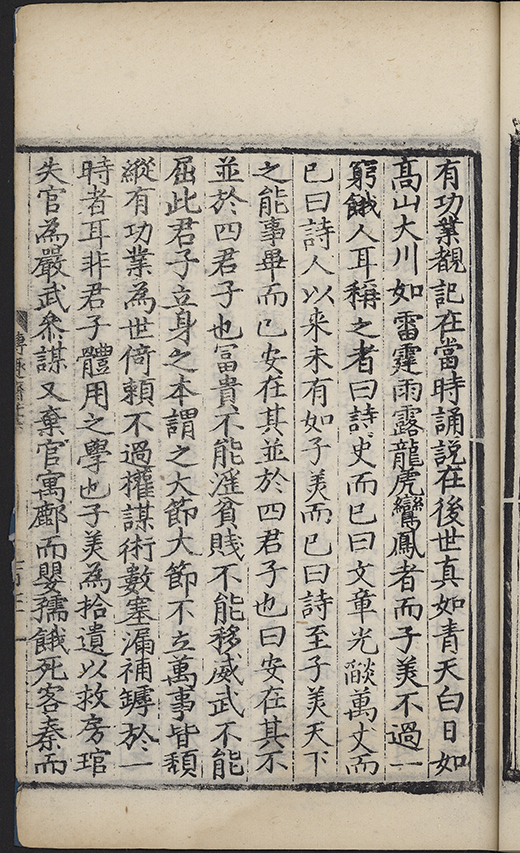 有功業觀記在當時誦說在後世真如青天白日如
高山大川如雷霆雨露龍虎鸞鳳者而子美不過一
窮餓人耳稱之者曰詩史而已曰文章光燄萬丈而
已曰詩人以来未有如子美而已曰詩至子美天下
之能事畢而已安在其並於四君子也曰安在其不
並於四君子也冨貴不能淫貧賤不能移威武不能
屈此君子立身之本謂之大節大節不立萬事皆頽
縱有功業為世倚賴不過權謀術數塞漏補罅於一
時者耳非君子體用之學也子美為拾遺以救房琯
失官為嚴武叅謀又棄官寓鄜而嬰孺餓死客秦而